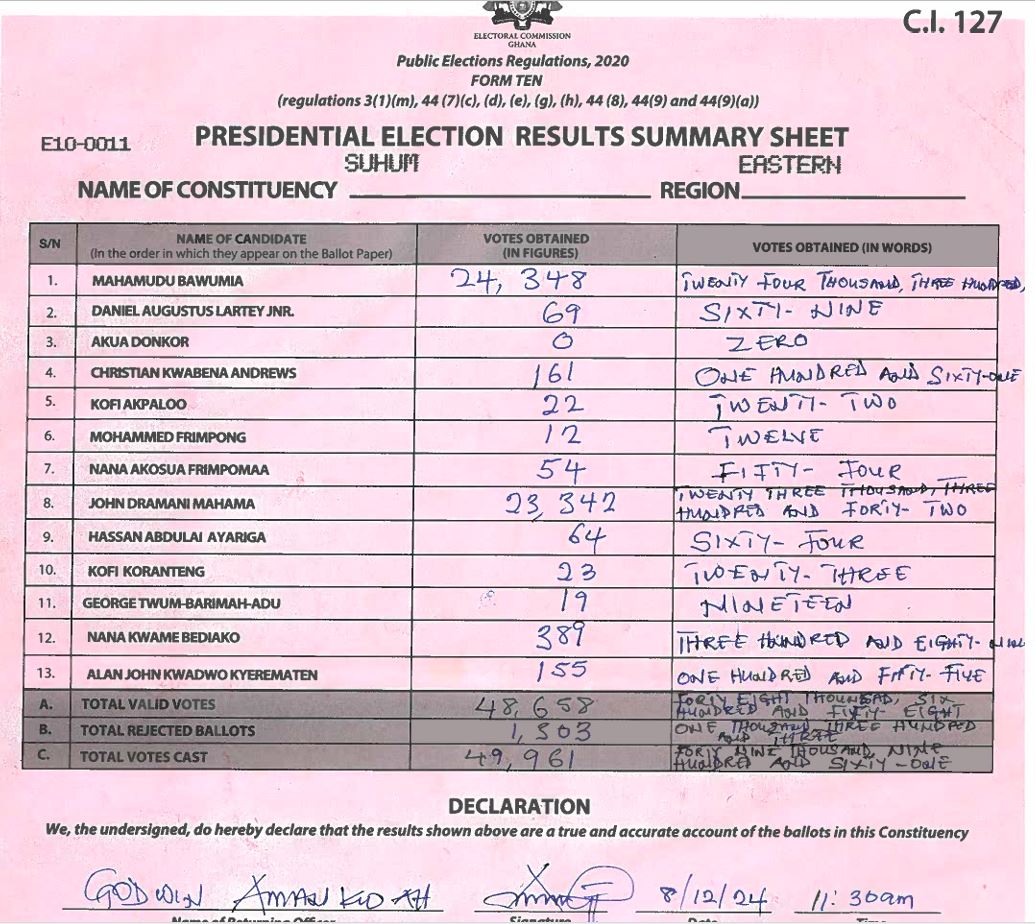 C.I. 127
ELECTORAL COMMISSION
GHANA
Public Elections Regulations, 2020
FORM TEN
(regulations 3(1)(m), 44 (7)(c), (d), (e), (g), (h), 44 (8), 44(9) and 44(9)(a))
E10-0011
PRESIDENTIAL ELECTION RESULTS SUMMARY SHEET
SUHUM EASTERN
NAME OF CONSTITUENCY REGION
S/N NAME OF CANDIDATE (In the order in which they appear on the Ballot Paper) VOTES OBTAINED (IN FIGURES) VOTES OBTAINED (IN WORDS)
1. MAHAMUDU BAWUMIA 24, 348 TWENTY FOUR THOUSAND, THREE HUNDRED,
2. DANIEL AUGUSTUS LARTEY JNR. 69 SIXTY-NINE
3. AKUA DONKOR 0 ZERO
4. CHRISTIAN KWABENA ANDREWS 161 ONE HUNDRED AND SIXTY-ONE
5. KOFI AKPALOO 22 TWENTY-TWO
6. MOHAMMED FRIMPONG 12 TWELVE
7. NANA AKOSUA FRIMPOMAA 54 FIFTY-FOUR
8. JOHN DRAMANI MAHAMA 23, 342 TWENTY THREE THOUSAND, THREE
HUNDRED AND FORTY-TWO
9. HASSAN ABDULAI AYARIGA 64 SIXTY-FOUR
10. KOFI KORANTENG 23 TWENTY-THREE
11. GEORGE TWUM-BARIMAH-ADU 19 NINETEEN
12. NANA KWAME BEDIAKO 389 THREE HUNDRED AND EIGHTY-NINE
13. ALAN JOHN KWADWO KYEREMATEN 155 ONE HUNDRED AND FIFTY-FIVE
A. TOTAL VALID VOTES 48, 658 FORTY EIGHT THOUNSAD, SIX
HUNDRED AND FIFTY-EIGHT
B. TOTAL REJECTED BALLOTS 1, 303 ONE THOUSAND THREE HUNDRED
AND THREE
C. TOTAL VOTES CAST 49, 961 FORTY NINE THOUSAND, NINE
HUNDRED AND SIXTY-ONE
DECLARATION
We, the undersigned, do hereby declare that the results shown above are a true and accurate account of the ballots in this Constituency
GODWIN AMANKWAH 8/12/24 11:30am
Name of Returning Officer Signature Date Time